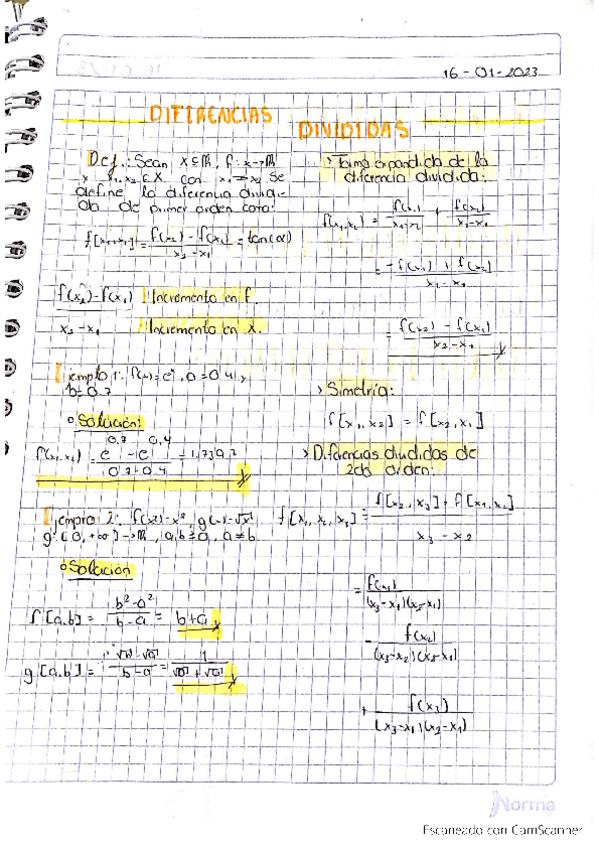 16-01-2023
DIFERENCIAS
DIVIDIDAS
Def.: Sean X⊆ℝ, f: x→ℝ
y x₁, x₂ ∈ X con x₁ ≠ x₂ se
define la diferencia dividi-
da de primer orden como:
f[x₁,x₂] = f(x₂) - f(x₁) / x₂ - x₁ = tan(α)
f(x₂)-f(x₁) Incremento en f.
x₂ - x₁ Incremento en X.
Ejemplo 1: f(x)=eˣ, a=0.4 y
b=0.7
Solución:
f(x₁,x₂) = e^0.7 - e^0.4 / 0.7-0.4
Ejemplo 2: f(x)=x², g(x)=√x
g: [0, +∞] → ℝ, a,b≥0, a≠b
Solución
f[a,b] = b²-a² / b-a = b+a
g[a,b] = √b - √a / b-a = 1 / √b + √a
> Forma expandida de la
diferencia dividida:
f(x₁,x₂) = f(x₁) / x₁-x₂ + f(x₂) / x₂-x₁
= -f(x₁) + f(x₂) / x₂-x₁
= f(x₂) - f(x₁) / x₂-x₁
> Simetría:
f[x₁, x₂] = f[x₂, x₁]
> Diferencias divididas de
2do orden:
f[x₁, x₂, x₃] = f[x₂, x₃] + f[x₁, x₂] / x₃ - x₂
= f(x₁) / (x₃-x₁)(x₂-x₁)
- f(x₂) / (x₃-x₂)(x₂-x₁)
+ f(x₃) / (x₃-x₁)(x₂-x₁)
Norma
Escaneado con CamScanner